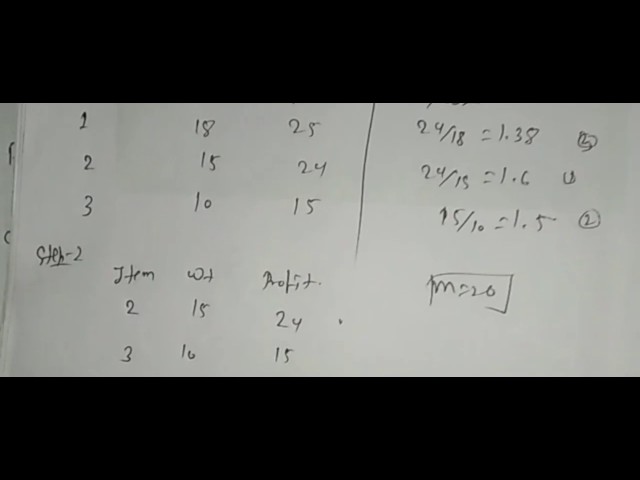 1 18 25 24/18 = 1.38 3
2 15 24 24/15 = 1.6 1
3 10 15 15/10 = 1.5 2
Step-2
Item Wt Profit.
m=20
2 15 24
3 10 15